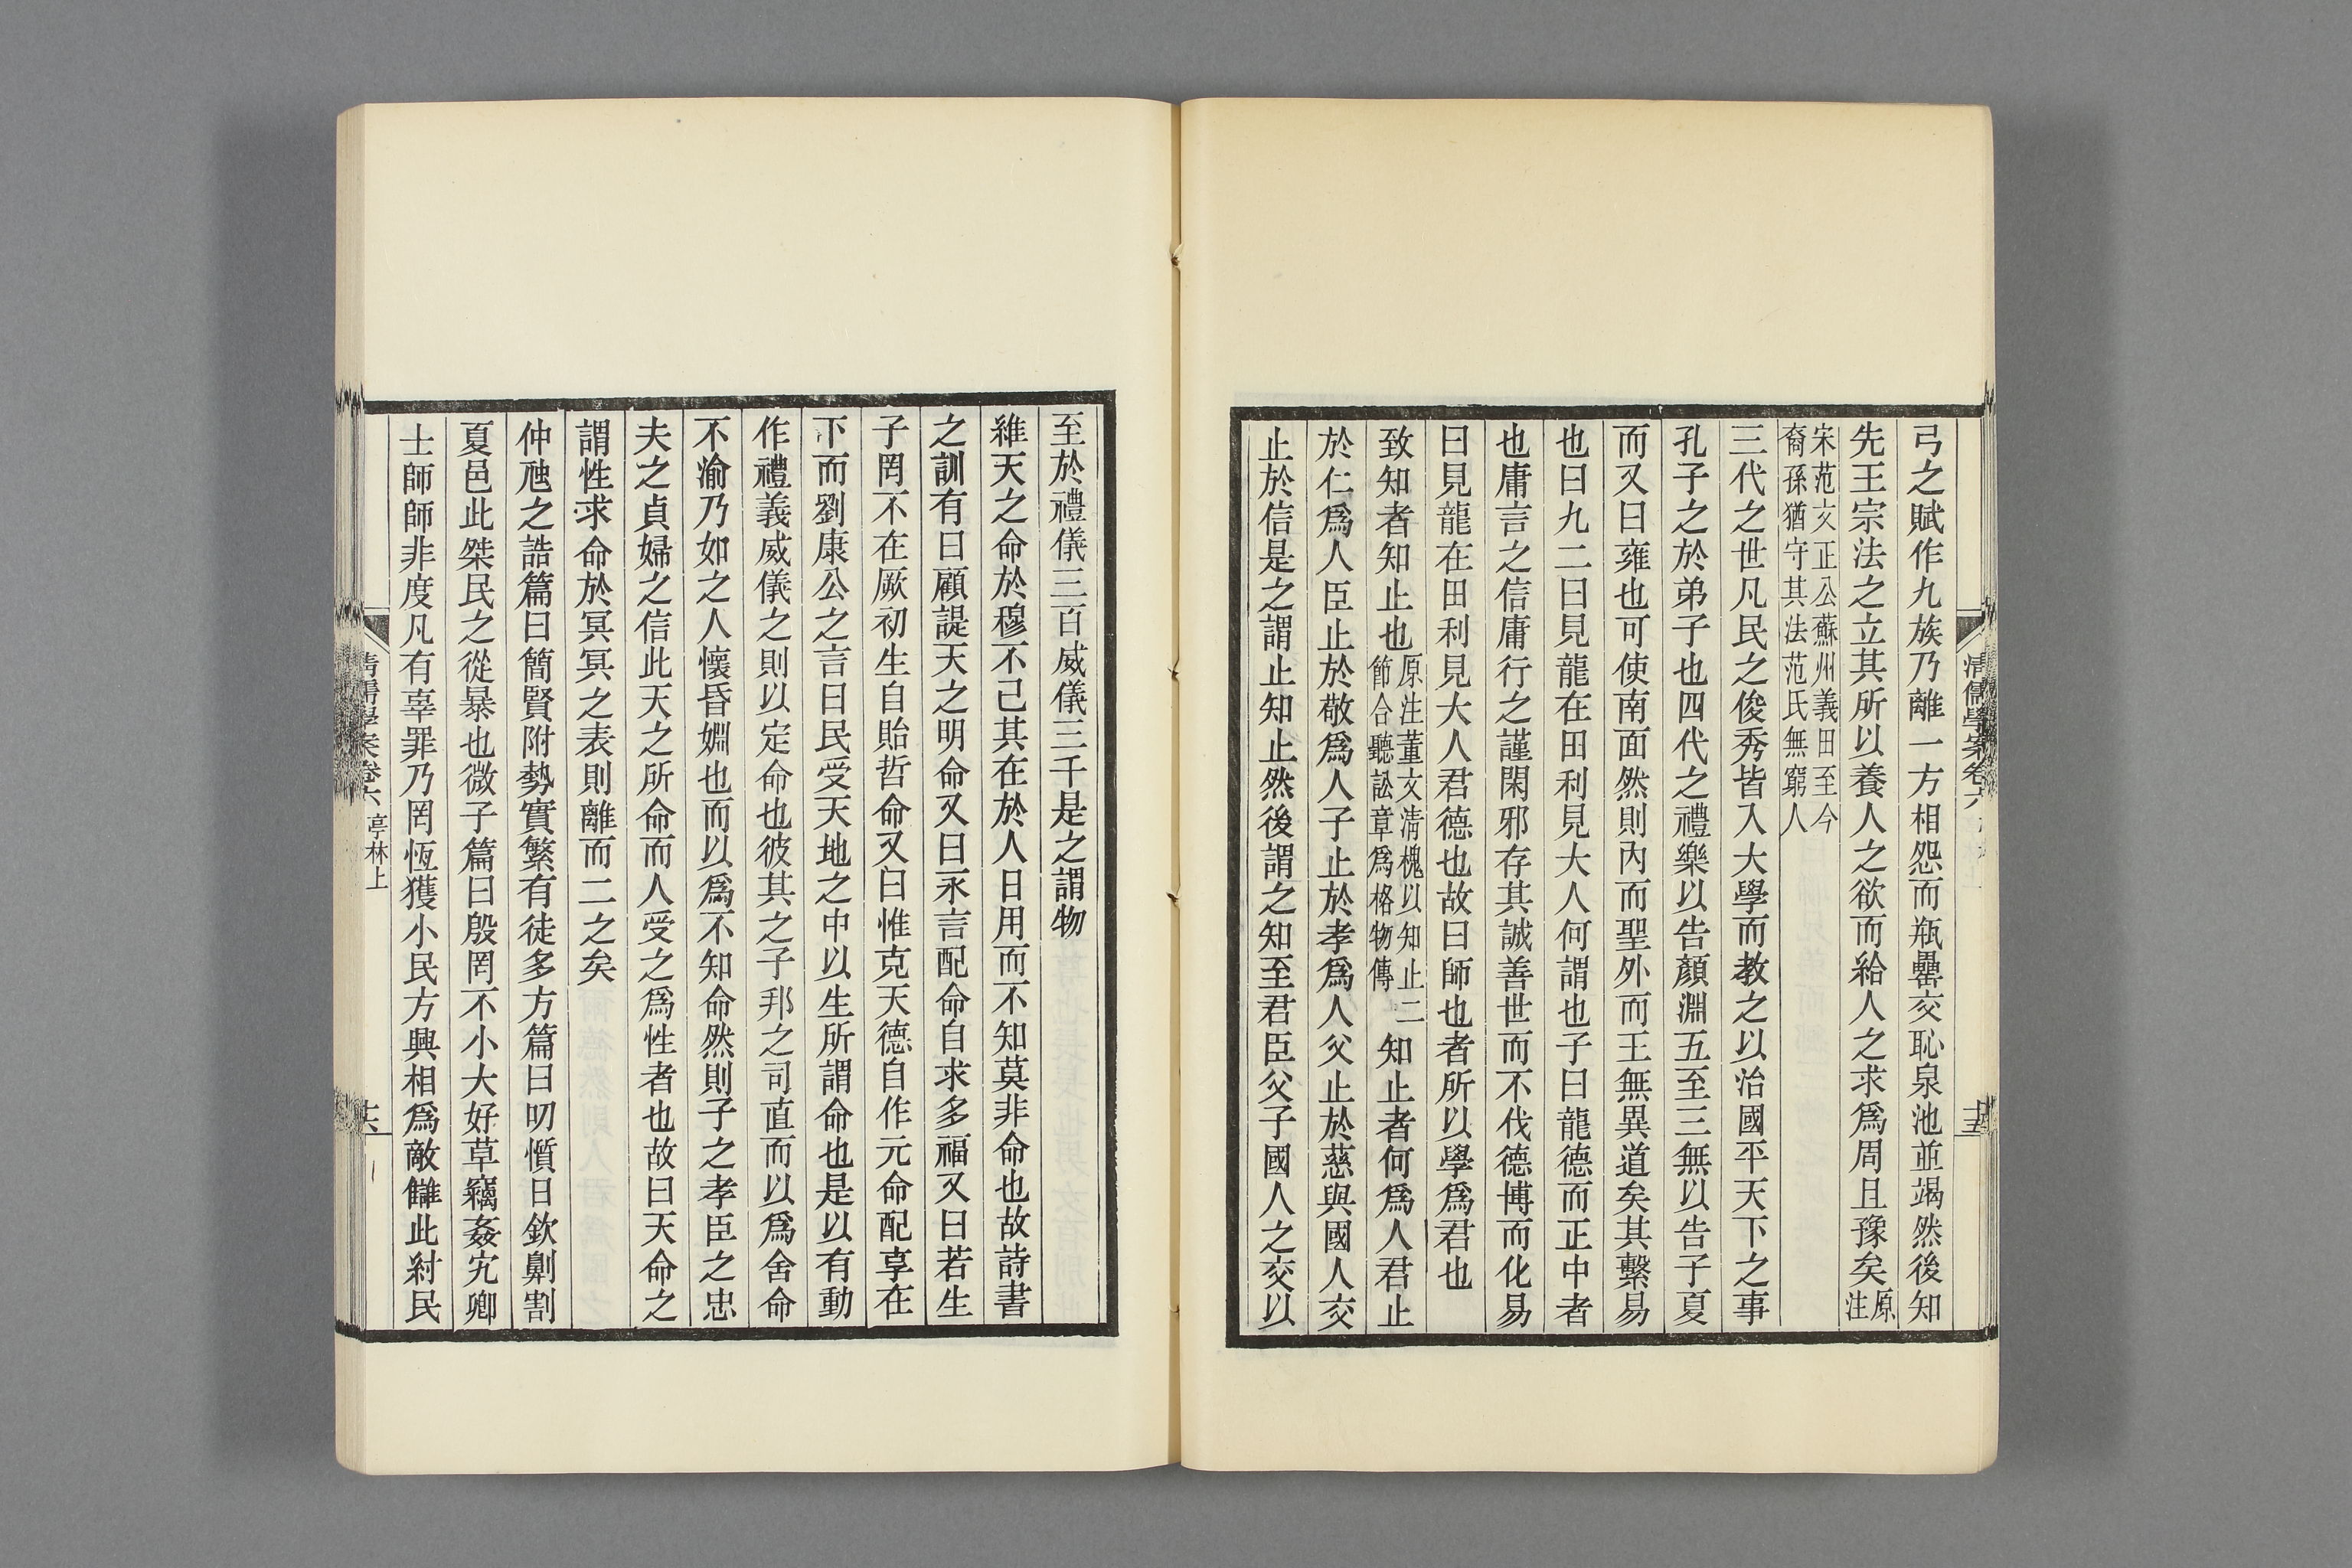 弓之賦作九族乃離一方相怨而瓶罍交恥泉池並竭然後知
先王宗法之立其所以養人之欲而給人之求爲周且豫矣原注
宋范文正公蘇州義田至今
裔孫猶守其法范氏無窮人
三代之世凡民之俊秀皆入大學而教之以治國平天下之事
孔子之於弟子也四代之禮樂以告顏淵五至三無以告子夏
而又曰雍也可使南面然則內而聖外而王無異道矣其繫易
也曰九二曰見龍在田利見大人何謂也子曰龍德而正中者
也庸言之信庸行之謹閑邪存其誠善世而不伐德博而化易
曰見龍在田利見大人君德也故曰師也者所以學爲君也
致知者知止也原注董文清槐以知止二節合聽訟章爲格物傳知止者何爲人君止
於仁爲人臣止於敬爲人子止於孝爲人父止於慈與國人交
止於信是之謂止知止然後謂之知至君臣父子國人之交以
清儒學案卷六
十五
至於禮儀三百威儀三千是之謂物
維天之命於穆不已其在於人日用而不知莫非命也故詩書
之訓有曰顧諟天之明命又曰永言配命自求多福又曰若生
子罔不在厥初生自貽哲命又曰惟克天德自作元命配享在
下而劉康公之言曰民受天地之中以生所謂命也是以有動
作禮義威儀之則以定命也彼其之子邦之司直而以爲舍命
不渝乃如之人懷昏姻也而以爲不知命然則子之孝臣之忠
夫之貞婦之信此天之所命而人受之爲性者也故曰天命之
謂性求命於冥冥之表則離而二之矣
仲虺之誥篇曰簡賢附勢實繁有徒多方篇曰叨懫日欽劓割
夏邑此桀民之從暴也微子篇曰殷罔不小大好草竊姦宄卿
士師師非度凡有辜罪乃罔恆獲小民方興相爲敵讎此紂民
清儒學案卷六 亭林上
十六